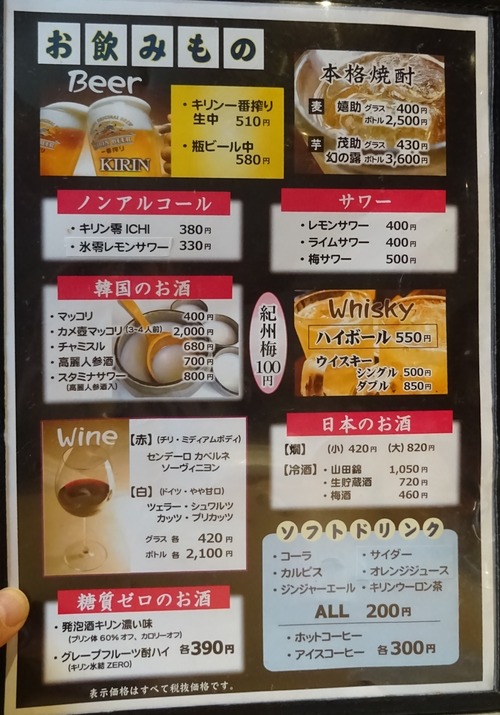 お飲みもの
Beer
KIRIN
・キリン一番搾り
生中 510円
・瓶ビール中
580円
本格焼酎
麦 嬉助 グラス 400円
ボトル 2,500円
芋 茂助 グラス 430円
幻の露 ボトル 3,600円
ノンアルコール
・キリン零 ICHI 380円
・氷零レモンサワー 330円
サワー
・レモンサワー 400円
・ライムサワー 400円
・梅サワー 500円
韓国のお酒
・マッコリ 400円
・カメ壺マッコリ(3~4人前) 2,000円
・チャミスル 680円
・高麗人参酒 700円
・スタミナサワー 800円
(高麗人参酒入)
紀州梅
100円
Whisky
ハイボール 550円
ウイスキー
シングル 500円
ダブル 850円
Wine
【赤】(チリ・ミディアムボディ)
センデーロ カベルネ
ソーヴィニヨン
【白】(ドイツ・やや甘口)
ツェラー・シュワルツ
カッツ・ブリカッツ
グラス 各 420円
ボトル 各 2,100円
日本のお酒
【燗】 (小) 420円 (大) 820円
【冷酒】・山田錦 1,050円
・生貯蔵酒 720円
・梅酒 460円
ソフトドリンク
・コーラ ・サイダー
・カルピス ・オレンジジュース
・ジンジャーエール ・キリンウーロン茶
ALL 200円
・ホットコーヒー
・アイスコーヒー 各300円
糖質ゼロのお酒
・発泡酒キリン濃い味
(プリン体 60%オフ、カロリーオフ)
・グレープフルーツ酎ハイ 各390円
(キリン氷結 ZERO)
表示価格はすべて税抜価格です。